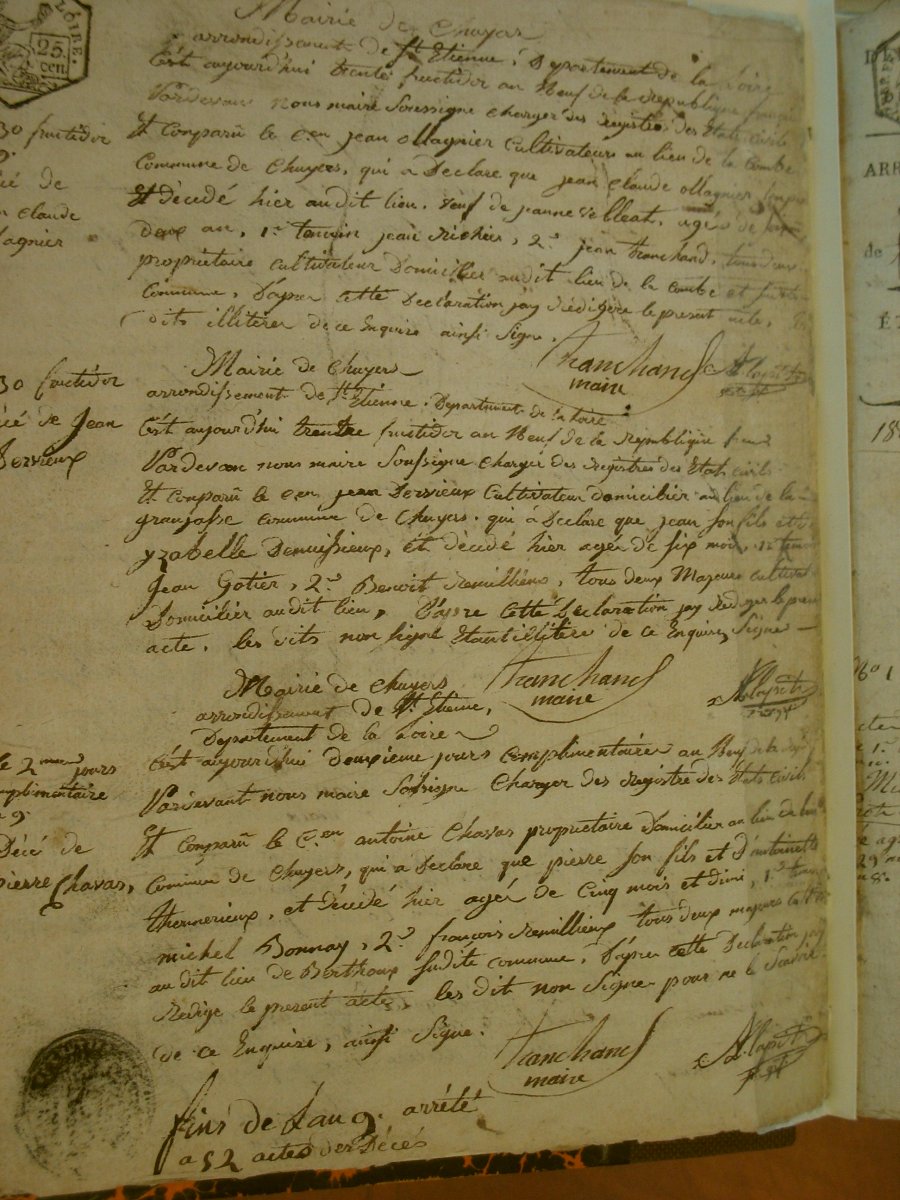 LOIRE.
25
cen
Mairie de Chuyer
arrondissement de St Etienne, Departement de la Loire
C'est aujourd'hui trente fructidor an Neuf de la Republique
Pardevant nous maire Soussigne Charger des Registres des Etats civils
Et Comparû le Cen jean ollagnier Cultivateur au lieu de la Combe
Commune de Chuyers, qui à Declare que jean Claude ollagnier
Et décedé hier audit lieu, veuf de jeanne Velleat, agé de
deux an, 1er temoin jean Richier, 2e jean tranchand, tous deux
proprietaire cultivateur Domicilier audit lieu de la Combe et susdite
Commune, D'aprer Cette Declaration jay Rédigere le present acte,
dits illiterer de ce Enquire ainsi Signe.
tranchand
maire
30 fructidor
9.
de
Claude
lagnier
Mairie de Chuyers
arrondissement de St Etienne, Departement de la Loire
C'est aujourd'hui trentre fructidor an Neuf de la Republique
Pardevan nous maire Soussigne Charger des Registres des Etats civils
Et Comparû le Cen jean Dervieux Cultivateur domicilier au lieu de la
granjasse Commune de Chuyers, qui à Declare que jean son fils et
yzabelle Demeissieux, Et décedé hier agér de six mois, 1er temoin
Jean Gotier, 2e Benoit Remillieux, tous deux Majeurs cultivat
Domicilier audit lieu, D'apre Cette Declaration jay Rediger le present
acte, les dits non Signe Etant illitere de ce Enquire, Signe
tranchand
maire
30 fructidor
de Jean
Dervieux
Mairie de Chuyers
arrondissement de St Etienne,
Departement de la Loire
C'est aujourd'hui deuxieme jours Complimentaire an Neuf de la
Pardevant nous maire Sousigne Charger des Registre des Etats civils
Et Comparû le Cen antoine Chavas proprietaire Domicilier au lieu de
Commun de Chuyers, qui à Declare que pierre son fils et d'antoinette
thonnerieux, et décedé hier agér de Cinq mois et dimi, 1er temoin
michel Bonnay, 2e françois Remillieux tous deux majeurs
audit lieu de Berthoux susdite commune, D'apres cette Declaration jay
Redige le present acte, les dit non Signe pour ne le Scavoir
de ce Enquire, ainsi Signe.
tranchand
maire
le 2me jours
mplimentaire
9.
Décé de
pierre Chavas,
fins de Lan 9. arrété
a 52 actes des Décés
ARR
de
18
No 1